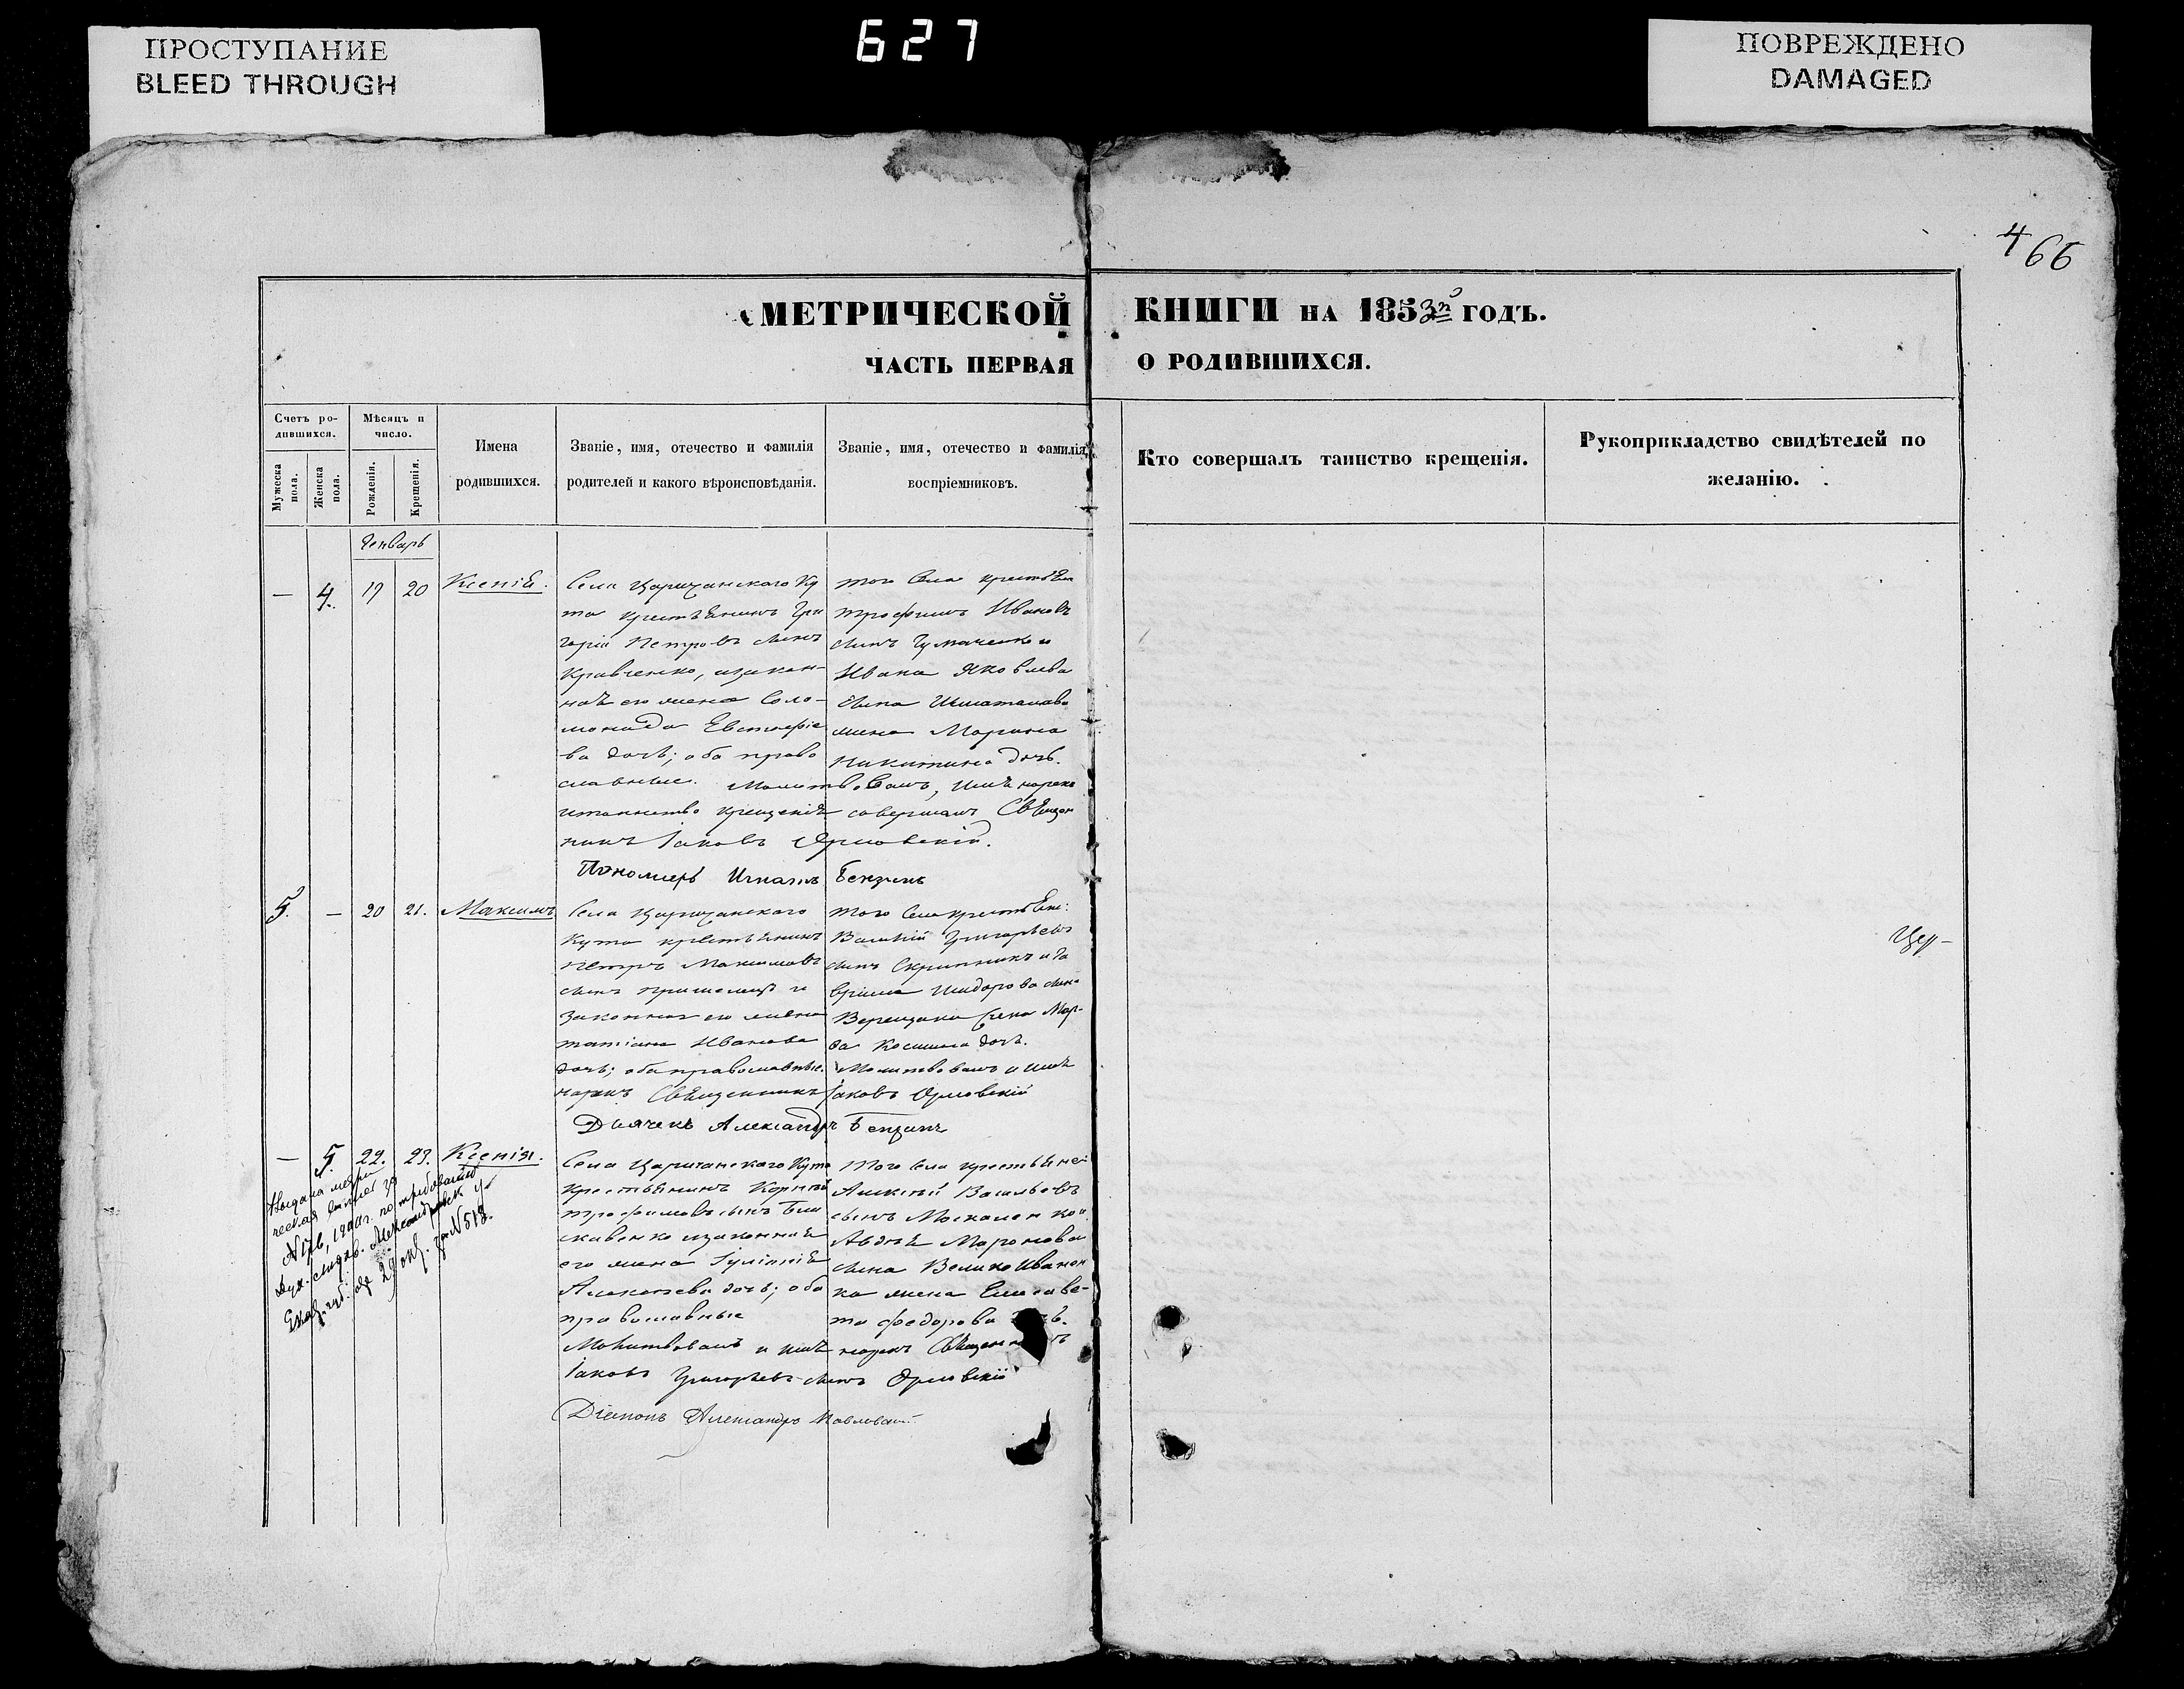 ПРОСТУПАНИЕ
BLEED THROUGH
627
ПОВРЕЖДЕНО
DAMAGED
466
МЕТРИЧЕСКОЙ КНИГИ НА 1853й ГОДЪ.
ЧАСТЬ ПЕРВАЯ О РОДИВШИХСЯ.
Счетъ ро-
дившихся.
Мужеска
пола.
Женска
пола.
Мѣсяцъ и
число.
Рожденія.
Крещенія.
Имена
родившихся.
Званіе, имя, отечество и фамилія
родителей и какого вѣроисповѣданія.
Званіе, имя, отечество и фамилія
воспріемниковъ.
Кто совершалъ таинство крещенія.
Рукоприкладство свидѣтелей по
желанію.
Генварь
— 4. 19 20 Ксенія.
Села Царичанского Ку
та крестьянинъ Гри
горій Петровъ сынъ
Кравченко, изакон-
ная его жена Соло-
монида Евстафіе
ва дочь; оба право
славные.
того села крестьян
Трофимъ Ивановъ
сынъ Чумаченко и
Ивана Яковлева
сына
жена Марина
Никитина дочь.
Молитвовалъ, имя нареко
итаинство крещенія совершалъ Священ
никъ Іаковъ Орловскій.
Пономарь Игнатъ Бензинъ
5. — 20 21. Максимъ
Села Царичанского
Кута крестьянинъ
Петръ Максимовъ
сынъ и
законная его жена
татіана Иванова
дочь; оба православные.
того села крестьян:
Василій Григорьевъ
сынъ Скрипникъ и Га
врила Исидорова сына
Верещаки жена Мар-
фа Космина дочь.
Молитвовалъ и имя
нарекъ Священникъ Іаковъ Орловскій
Дьячекъ Александръ Бензинъ
Цер-
— 5. 22. 23. Ксенія.
Села Царичанского Кута
крестьянинъ Корній
Трофимовъ сынъ
изаконная
его жена Іулианія
Алексѣева дочь; оба
православные
Того села крестьяне:
Алексѣй Васильевъ
сынъ Москаленко и
Авдѣя Маронова
сына Великоиванен
ка жена Елисаве-
та Федорова дочь.
Молитвовалъ и имя нарекъ Священникъ
Іаковъ Григорьевъ сынъ Орловскій
Діаконъ Александръ
Выдана метри
ческая выпись за
по требованію
Александровск у.
Екат. губ. от 29 окт. за N 513.